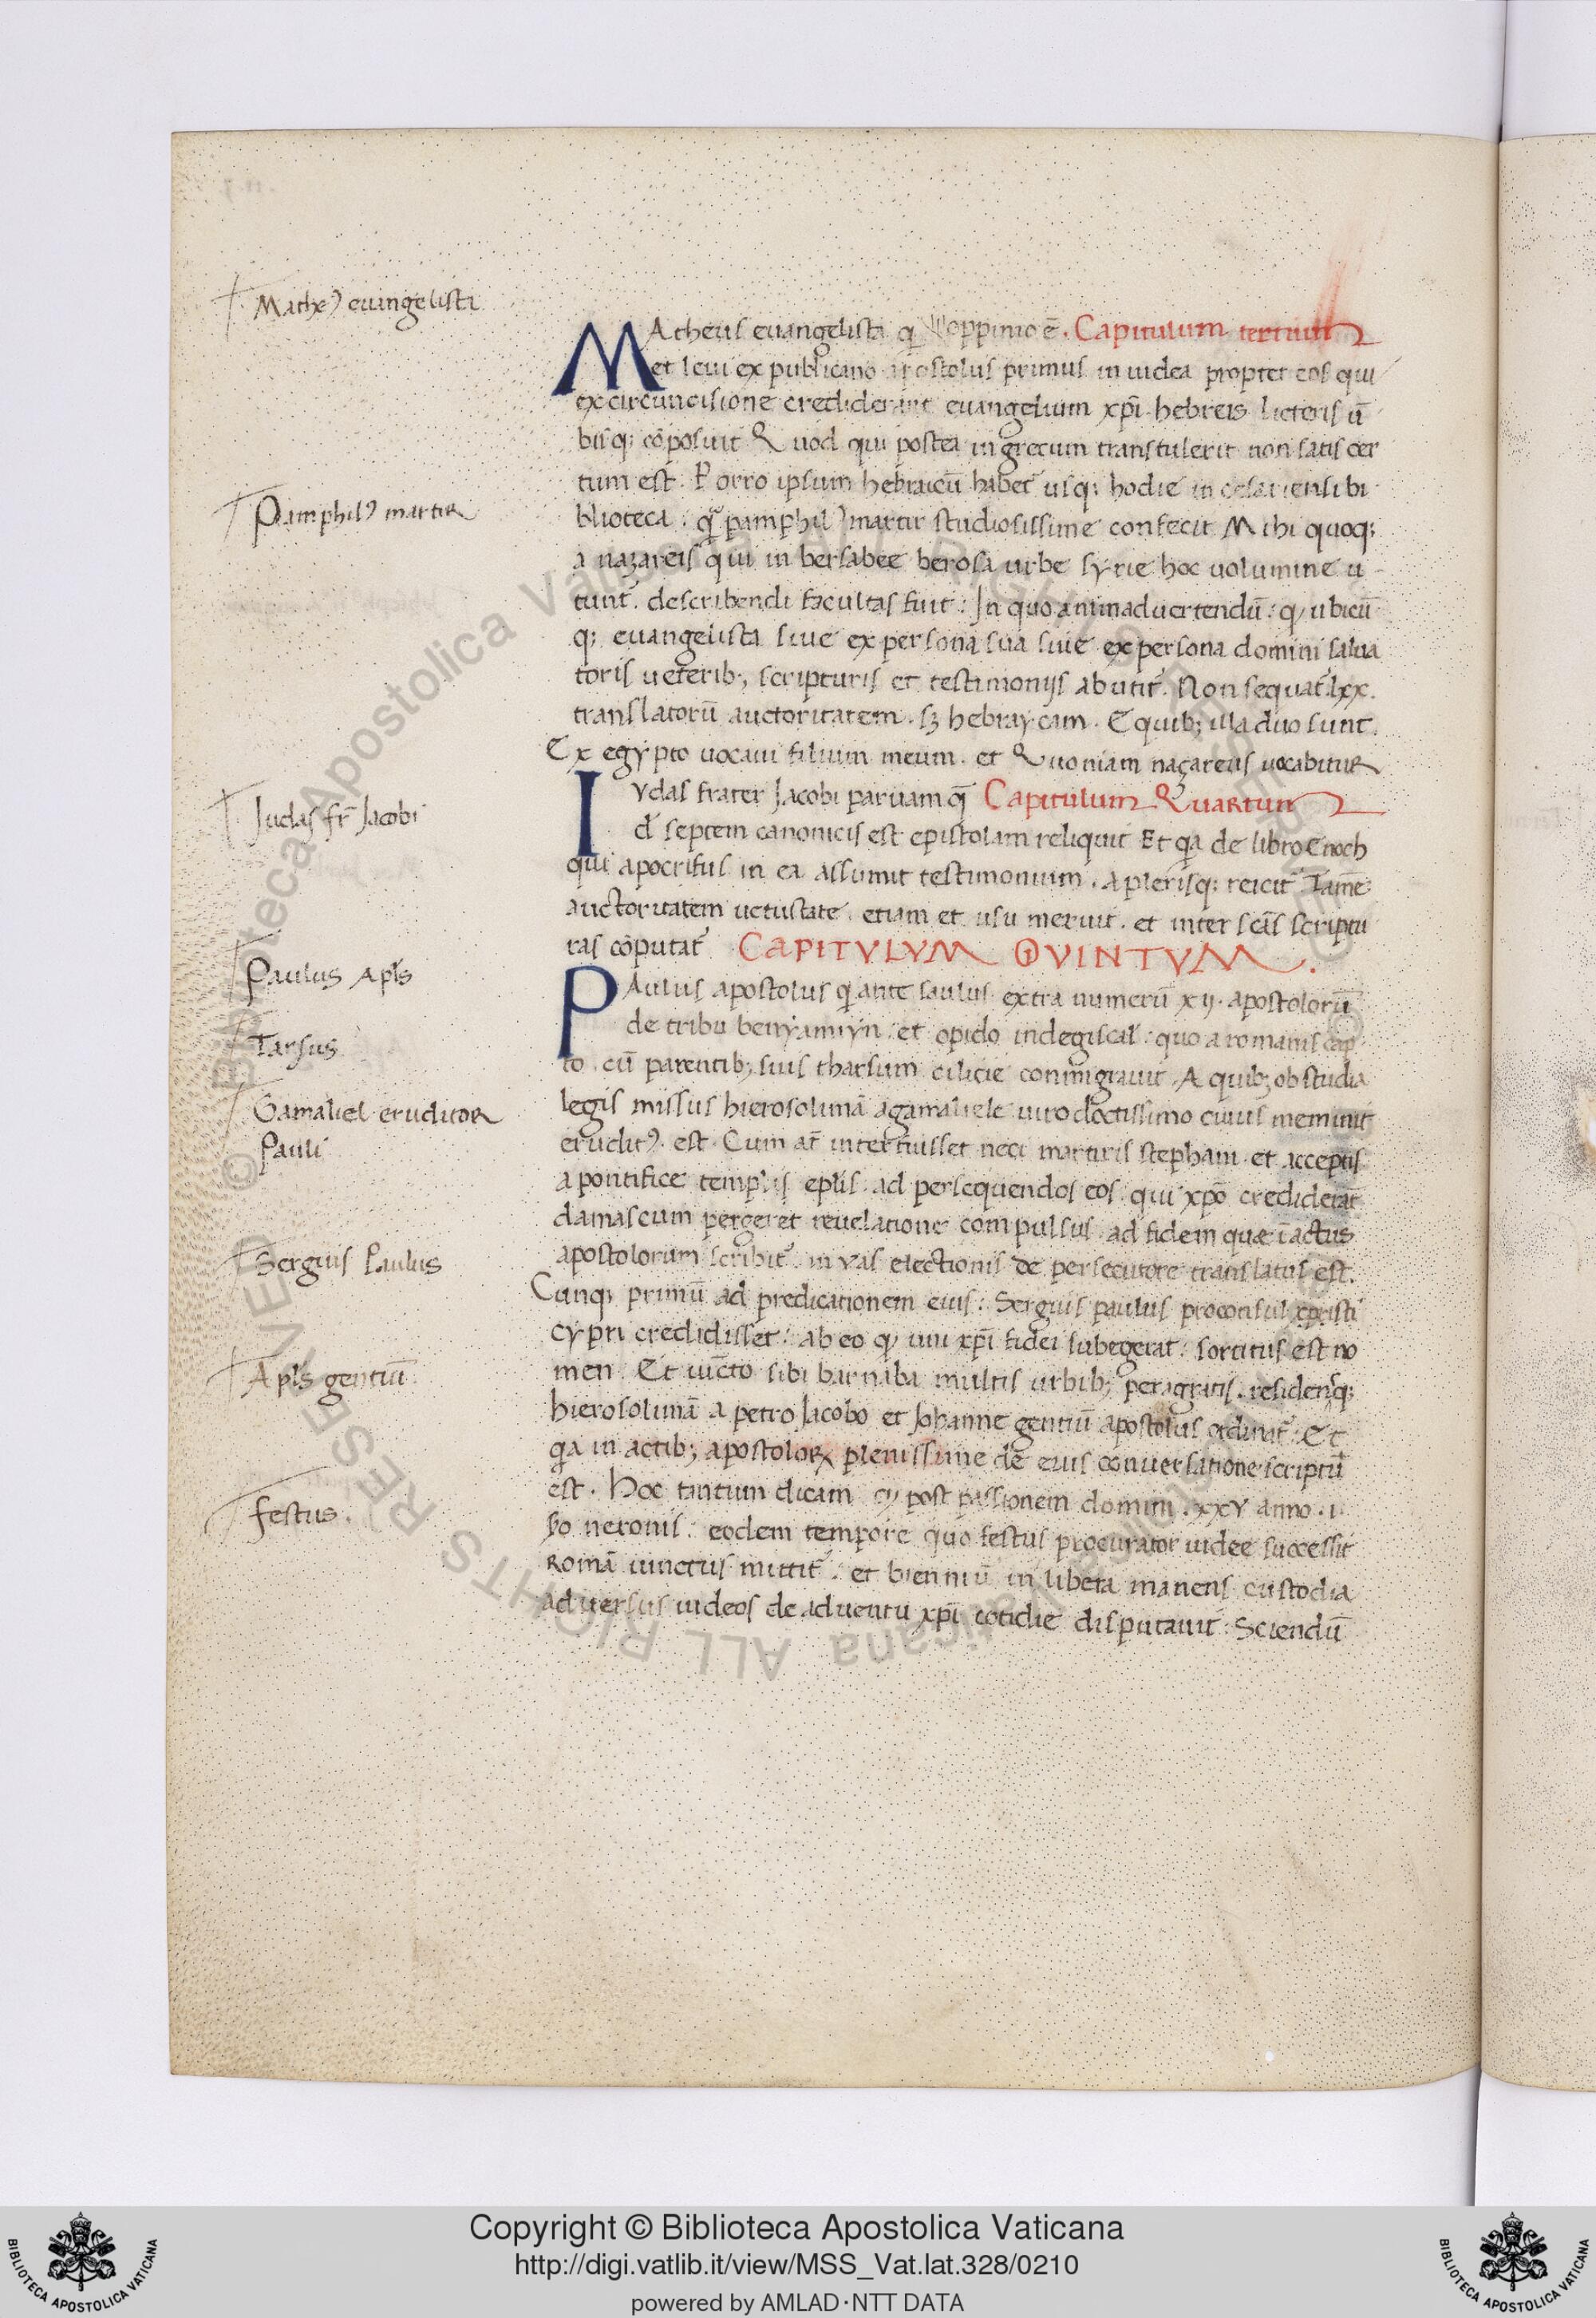 Mathe⁹ euangelista
MAtheus euangelista q̄ et oppinio ē. Capitulum tertium
et leui ex publicano apostolus primus in iudea propter eos qui
ex circuncisione crediderunt euangelium xp̄i hebreis licteris ū
bisq; cōposuit Quod qui postea in grecum transtulerit non satis cer
tum est. Porro ipsum hebraicū habet usq; hodie in cesariensi bi
Pamphil⁹ martir
blioteca. quā pamphil⁹ martir studiosissime confecit Mihi quoq;
a nazareis qui in bersabee berosa urbe syrie hoc uolumine u
tunt̄. describendi facultas fuit: In quo animaduertendū: qͥ ubicū
q; euangelista siue ex persona sua siue ex persona domini salua
toris ueterib; scripturis et testimonijs abutit̄. Non sequat̄ lxx.
translatorū auctoritatem. sꝫ hebraycam. E quib; illa duo sunt.
Ex egypto uocaui filium meum. et Quoniam naçareus uocabitur
Iudas fr̄ Jacobi
IVdas frater Jacobi paruam q̄ Capitulum Quartum
d̄ septem canonicis est epistolam reliquit Et qa de libro Enoch
qui apocrifus in ea assumit testimonium. a plerisq; reicit̄ Tamē
auctoritatem uetustate. etiam et usu meruit. et inter scās scriptu
ras cōputat̄ CAPITVLVM QVINTVM.
Paulus Apl̄s
PAulus apostolus q̄ ante saulus extra numerū xij. apostolorū
Tarsus
de tribu benyamyn. et opido indegiscal: quo a romanis cap
to. cū parentib; suis tharsum cilicie commigrauit A quib; ob studia
Gamaliel eruditor
Pauli
legis missus hierosolimā a gamaliele uiro doctissimo cuius meminit
erudit⁹. est. Cum at̄ interfuisset neci martiris stephani et acceptis
a pontifice templis ep̄lis. ad persequendos eos qui xp̄o crediderāt
damascum pergeret reuelatione compulsus ad fidem quæ ī actus
Sergius Paulus
apostolorum scribit̄. in uas electionis de persecutore translatus est.
Cunq; primū ad predicationem eius: Sergius paulus proconsul
cypri credidisset: ab eo qͥ uui xp̄i fidei subegerat: sortitus est no
Apl̄s gentiū
men. Et iuncto sibi barnaba multis urbib; peragratis. residensq;
hierosolimā a petro Jacobo et Johanne gentiū apostolus ordinat̄: Et
qa in actib; apostolorꝝ plenissime de eius conuersatione scriptū
est. Hoc tantum dicam qͥ post passionem domini. xxv anno. i.
Festus.
ßo neronis. eodem tempore quo festus procurator iudee successit
Romā uinctus mittit̄. et bienniū in libera manens custodia
aduersus iudeos de aduentu xp̄i cotidie disputauit: Sciendū
Copyright © Biblioteca Apostolica Vaticana
http://digi.vatlib.it/view/MSS_Vat.lat.328/0210
powered by AMLAD·NTT DATA